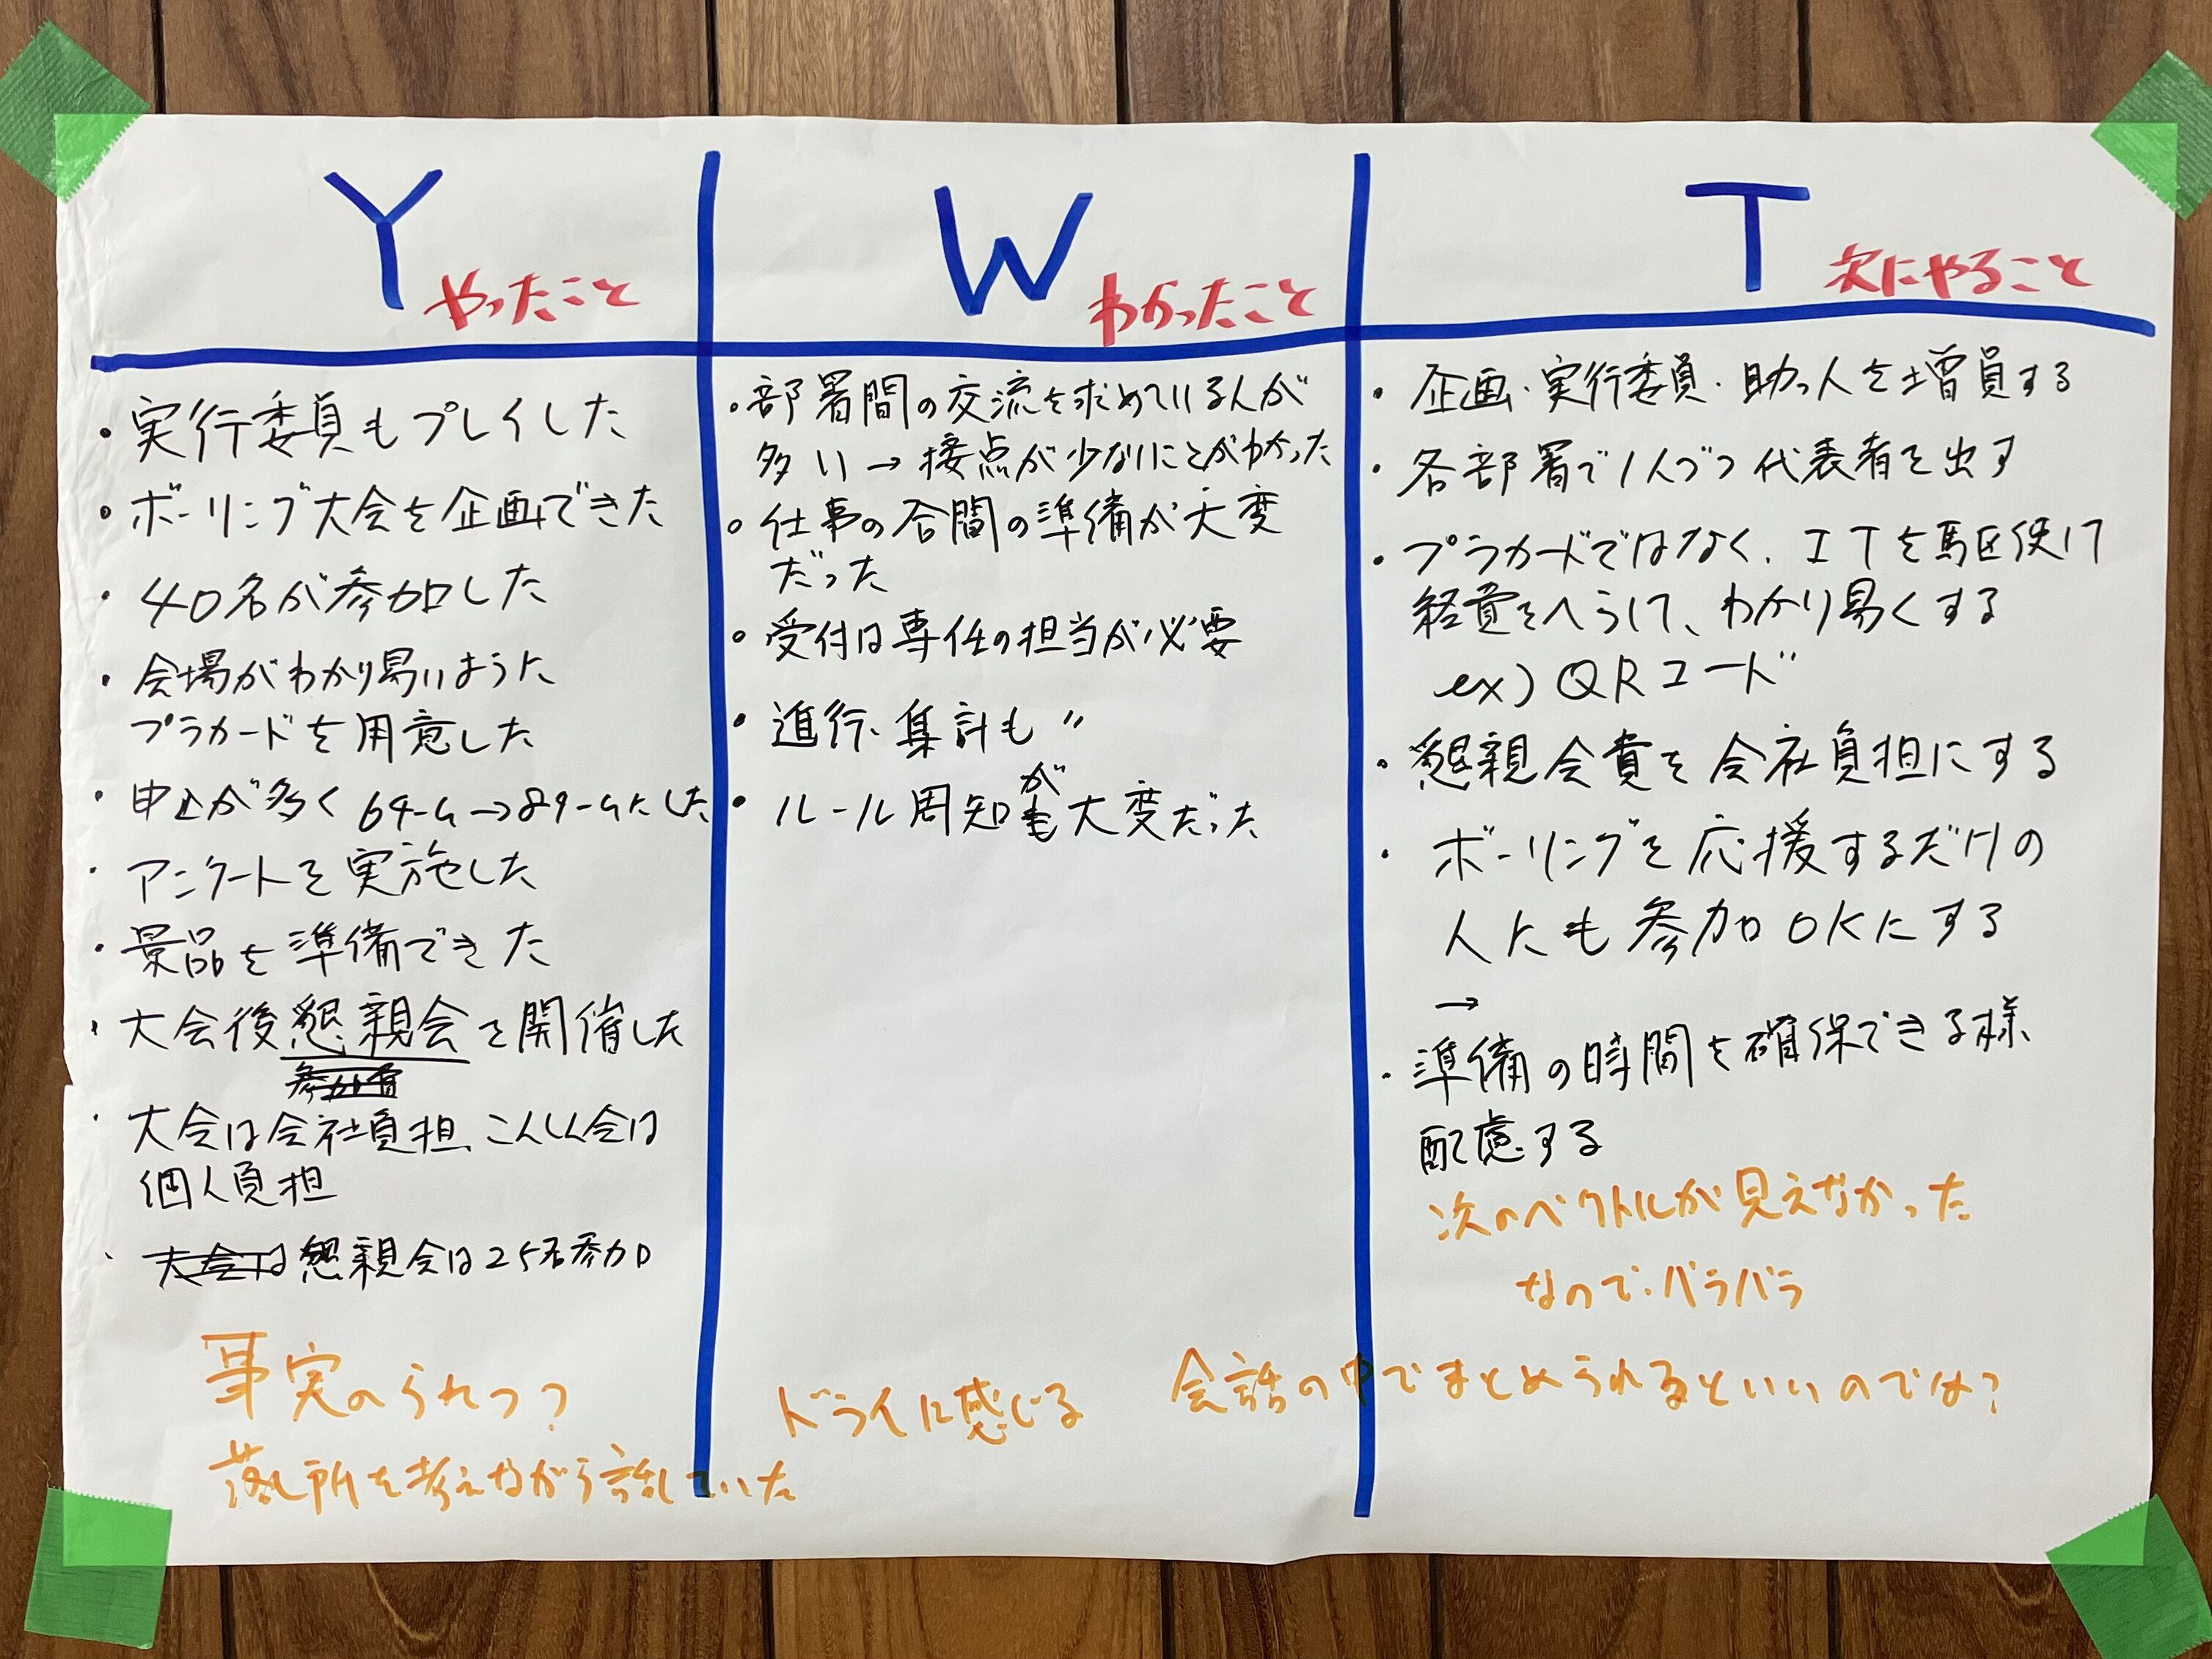 Y やったこと
・実行委員もプレイした
・ボーリング大会を企画できた
・40名が参加した
・会場がわかり易いように
プラカードを用意した
・申込が多く 6チーム→8チームにした
・アンケートを実施した
・景品を準備できた
・大会後懇親会を開催した
・大会は会社負担、こんしん会は
個人負担
・大会は 懇親会は25名参加
事実のられつ?
落し所を考えながら話していた
W わかったこと
・部署間の交流を求めている人が
多い→接点が少ないことがわかった
・仕事の合間の準備が大変
だった
・受付は専任の担当が必要
・進行、集計も 〃
・ルール周知が大変だった
ドライに感じる
T 次にやること
・企画・実行委員・助っ人を増員する
・各部署で1人づつ代表者を出す
・プラカードではなく、ITを駆使して
経費をへらして、わかり易くする
ex) QRコード
・懇親会費を会社負担にする
・ボーリングを応援するだけの
人にも参加OKにする
→
・準備の時間を確保できる様
配慮する
次のベクトルが見えなかった
なので、バラバラ
会話の中でまとめられるといいのでは?